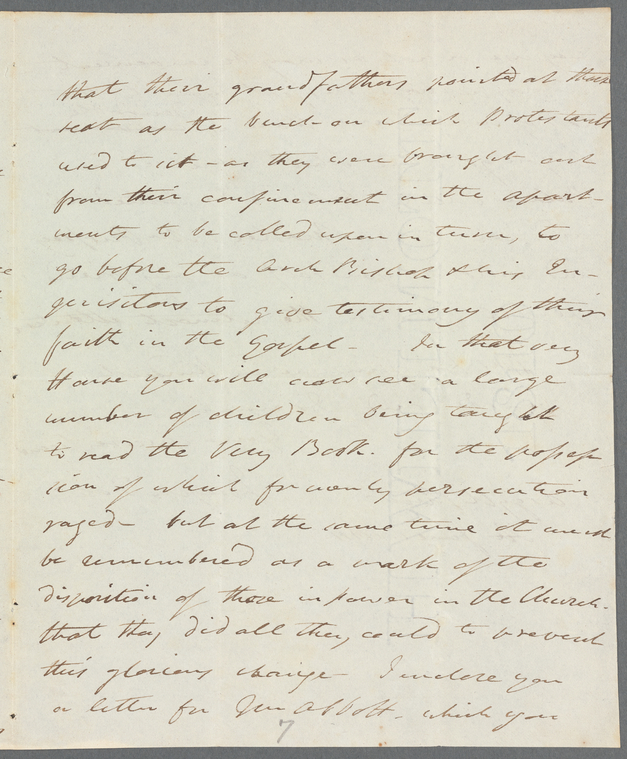 that their grandfathers pointed at that
seat as the bench on which Protestants
used to sit - as they were brought out
from their confinement in the apart-
ments to be called upon in turn, to
go before the Arch Bishop & his In-
quisitors to give testimony of their
faith in the Gospel - In that very
House you will now see a large
number of children being taught
to read the Very Book. for the posses
sion of which formerly persecution
raged - but at the same time it must
be remembered as a mark of the
disposition of those in power in the Church.
that they did all they could to prevent
this glorious change - I enclose you
a letter for Jno Abbott - which you
7